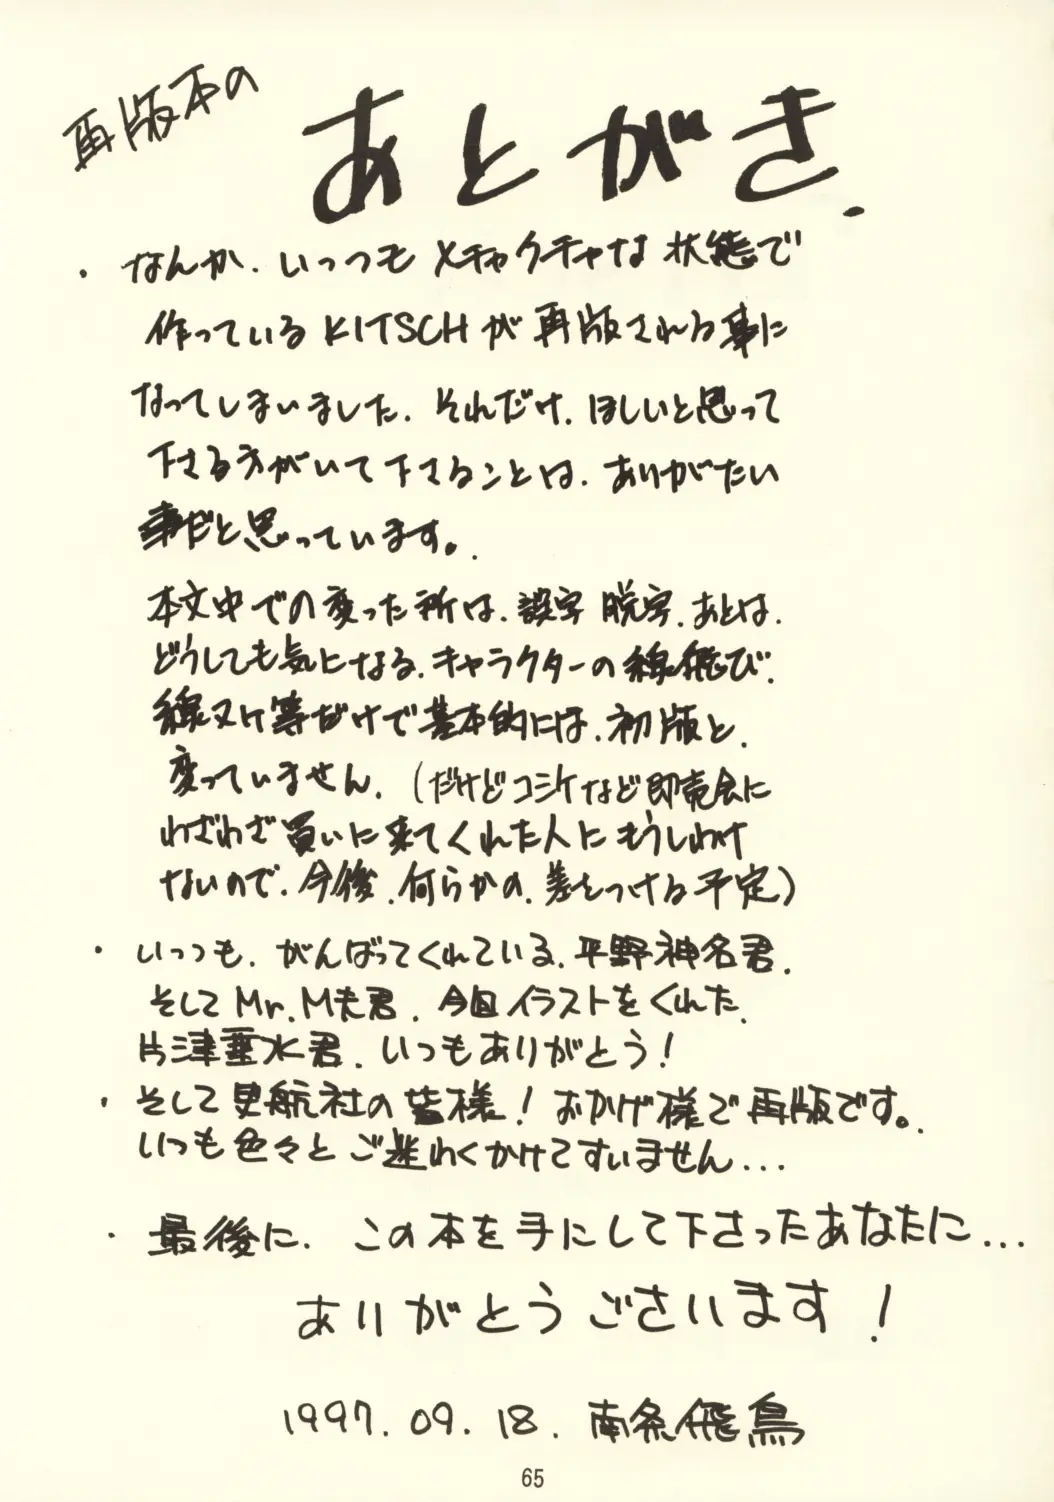 再版本の
あとがき.
・なんか、いっつもメチャクチャな状態で
作っているKITSCHが再版される事に
なってしまいました. それだけ、ほしいと思って
下さる方がいて下さるンとは、ありがたい
事だと思っています。.
本文中での変った所は、誤字 脱字、あとは、
どうしても気になる、キャラクターの線飛び、
線ヌケ等だけで基本的には、初版と、
変っていません. (だけどコミケなど即売会に
わざわざ買いに来てくれた人にもうしわけ
ないので、今後、何らかの、差をつける予定)
・いっつも、がんばってくれている、平野神名君、
そしてMr.M夫君、今回イラストをくれた、
片津垂水君、いつもありがとう!
・そして曳航社の皆様! おかげ様で再版です。.
いつも色々とご迷わくかけてすいません...
・最後に、この本を手にして下さったあなたに...
ありがとうございます!
1997.09.18. 南条飛鳥
65